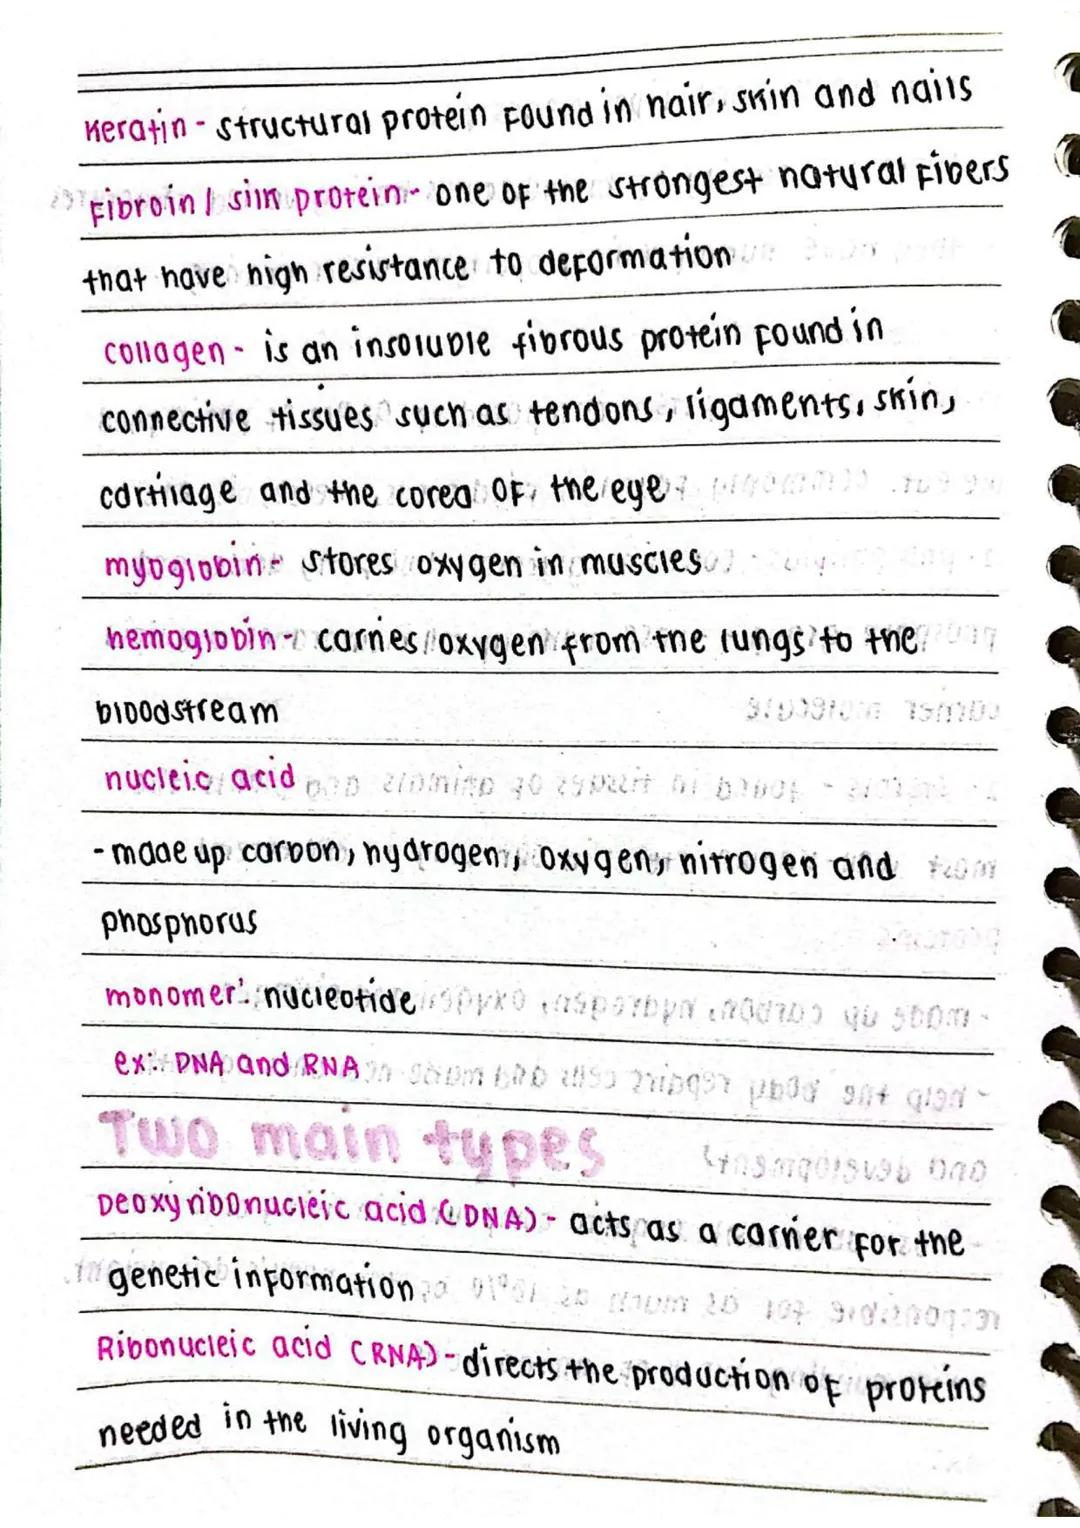 Keratin - structural protein Found in hair, skin and nails
Fibroin / silk protein - one of the strongest natural Fibers
that have high resistance to deformation
collagen - is an insoluble fibrous protein found in
connective tissues such as tendons, ligaments, skin,
cartilage and the corea of the eye
myoglobin - stores oxygen in muscles
hemoglobin - carries oxygen from the lungs to the
bloodstream
nucleic acid
- made up carbon, hydrogen, oxygen, nitrogen and
phosphorus
monomer: nucleotide
ex: DNA and RNA
Two main types
Deoxyribonucleic acid (DNA) - acts as a carrier for the
genetic information
Ribonucleic acid (RNA) - directs the production of proteins
needed in the living organism